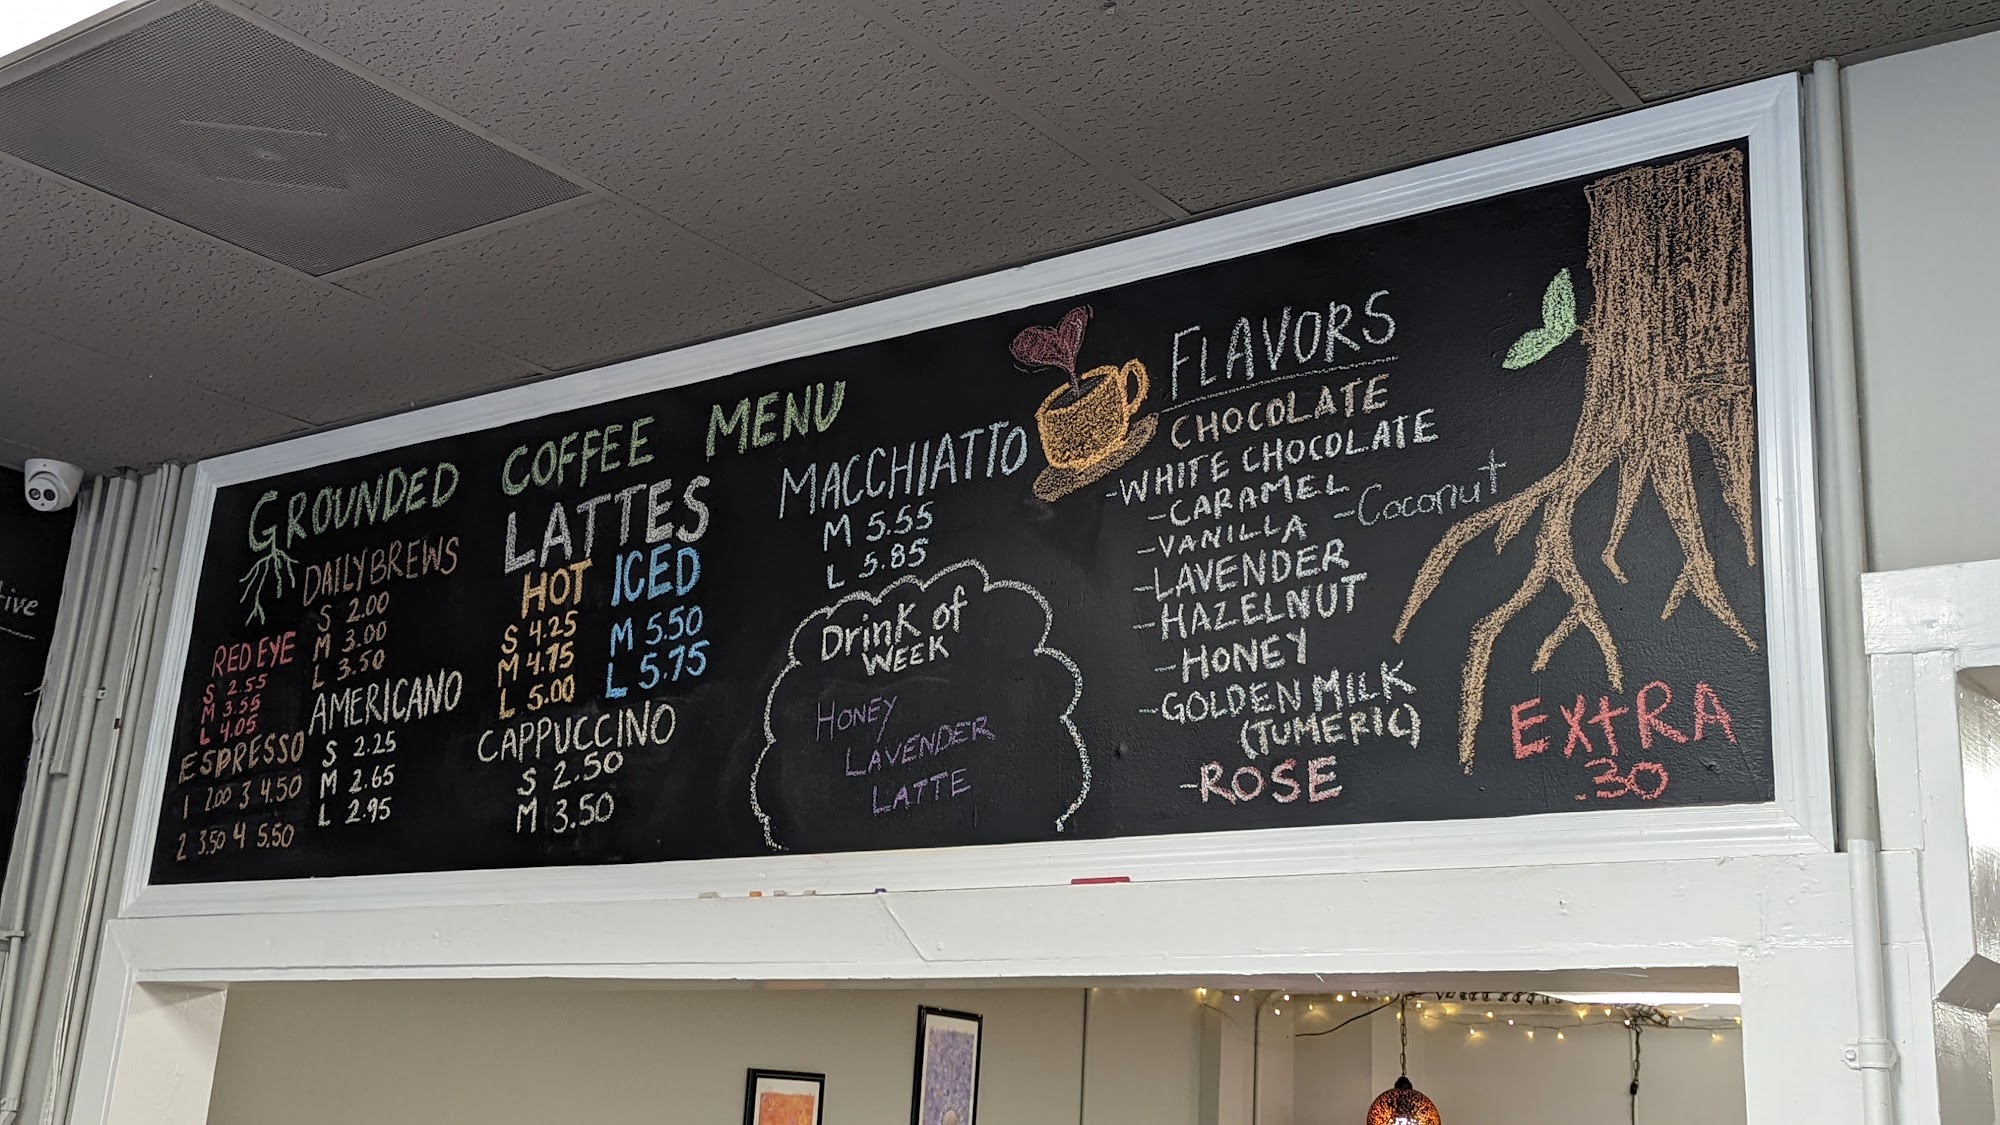 GROUNDED COFFEE MENU
DAILY BREWS
S 2.00
M 3.00
L 3.50
RED EYE
S 2.55
M 3.55
L 4.05
AMERICANO
S 2.25
M 2.65
L 2.95
ESPRESSO
1 2.00 3 4.50
2 3.50 4 5.50
LATTES
HOT
S 4.25
M 4.75
L 5.00
ICED
M 5.50
L 5.75
CAPPUCCINO
S 2.50
M 3.50
MACCHIATTO
M 5.55
L 5.85
Drink of
WEEK
HONEY
LAVENDER
LATTE
FLAVORS
CHOCOLATE
-WHITE CHOCOLATE
-CARAMEL
-Coconut
-VANILLA
-LAVENDER
-HAZELNUT
-HONEY
-GOLDEN MILK
(TUMERIC)
-ROSE
EXtRA
.30